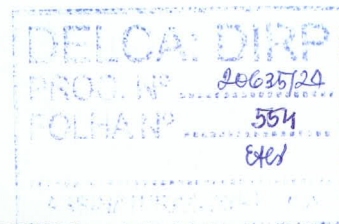 DELCA: DIRP
PROC. Nº 20635/24
FOLHA Nº 554